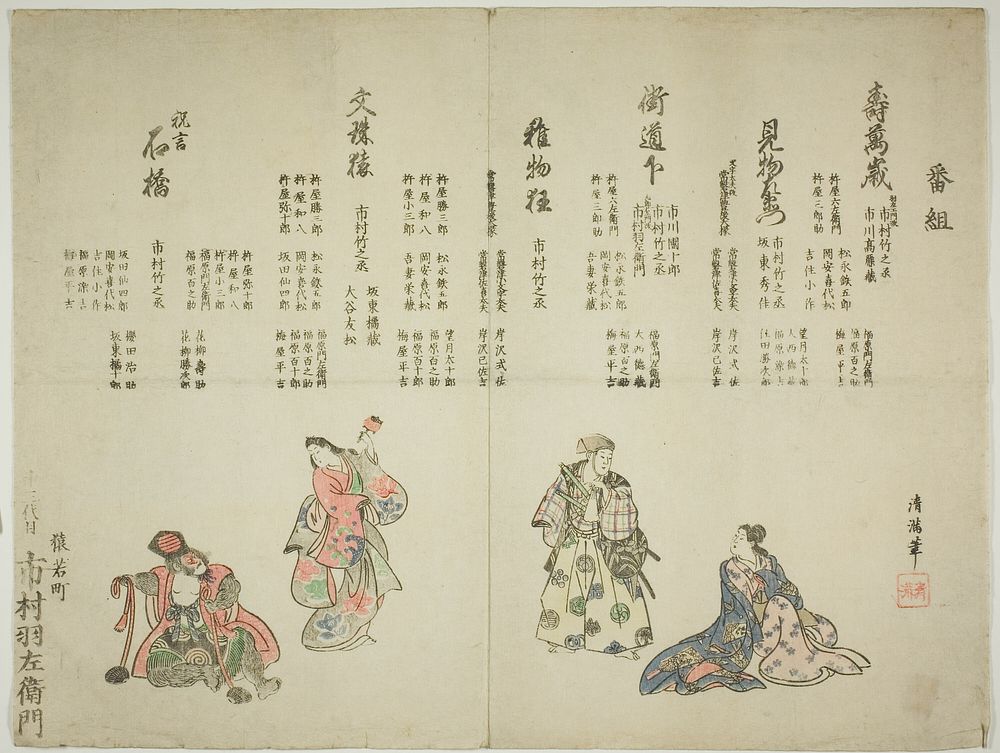 番組
壽萬歳
市村竹之丞
市川高藤藏
杵屋六左衛門
杵屋三郎助
松永鉄五郎
岡安喜代松
吉住小作
福原門左衛門
福原百之助
梅屋平吉
見物左衛門
市村竹之丞
坂東秀佳
常磐津小文字太夫
岸沢式佐
岸沢巳佐吉
望月太十郎
大西徳藏
福原源吉
住田勝次郎
街道下
市川團十郎
市村竹之丞
市村羽左衛門
杵屋六左衛門
杵屋三郎助
松永鉄五郎
岡安喜代松
吾妻栄藏
福原門左衛門
福原百之助
大西徳藏
梅屋平吉
稚物狂
市村竹之丞
岸沢式佐
岸沢巳佐吉
杵屋勝三郎
杵屋和八
杵屋小三郎
松永鉄五郎
岡安喜代松
吾妻栄藏
望月太十郎
福原百之助
福原百十郎
梅屋平吉
文珠猿
市村竹之丞
坂東橘藏
大谷友松
杵屋勝三郎
杵屋和八
杵屋弥十郎
松永鉄五郎
岡安喜代松
坂田仙四郎
福原門左衛門
福原百之助
福原百十郎
梅屋平吉
祝言
石橋
市村竹之丞
杵屋弥十郎
杵屋和八
杵屋小三郎
福原門左衛門
福原百之助
花柳壽助
花柳勝次郎
坂田仙四郎
岡安喜代松
吉住小作
福原源吉
梅屋平吉
櫻田治助
坂東橘十郎
清満筆
清満
猿若町
十二代目
市村羽左衛門